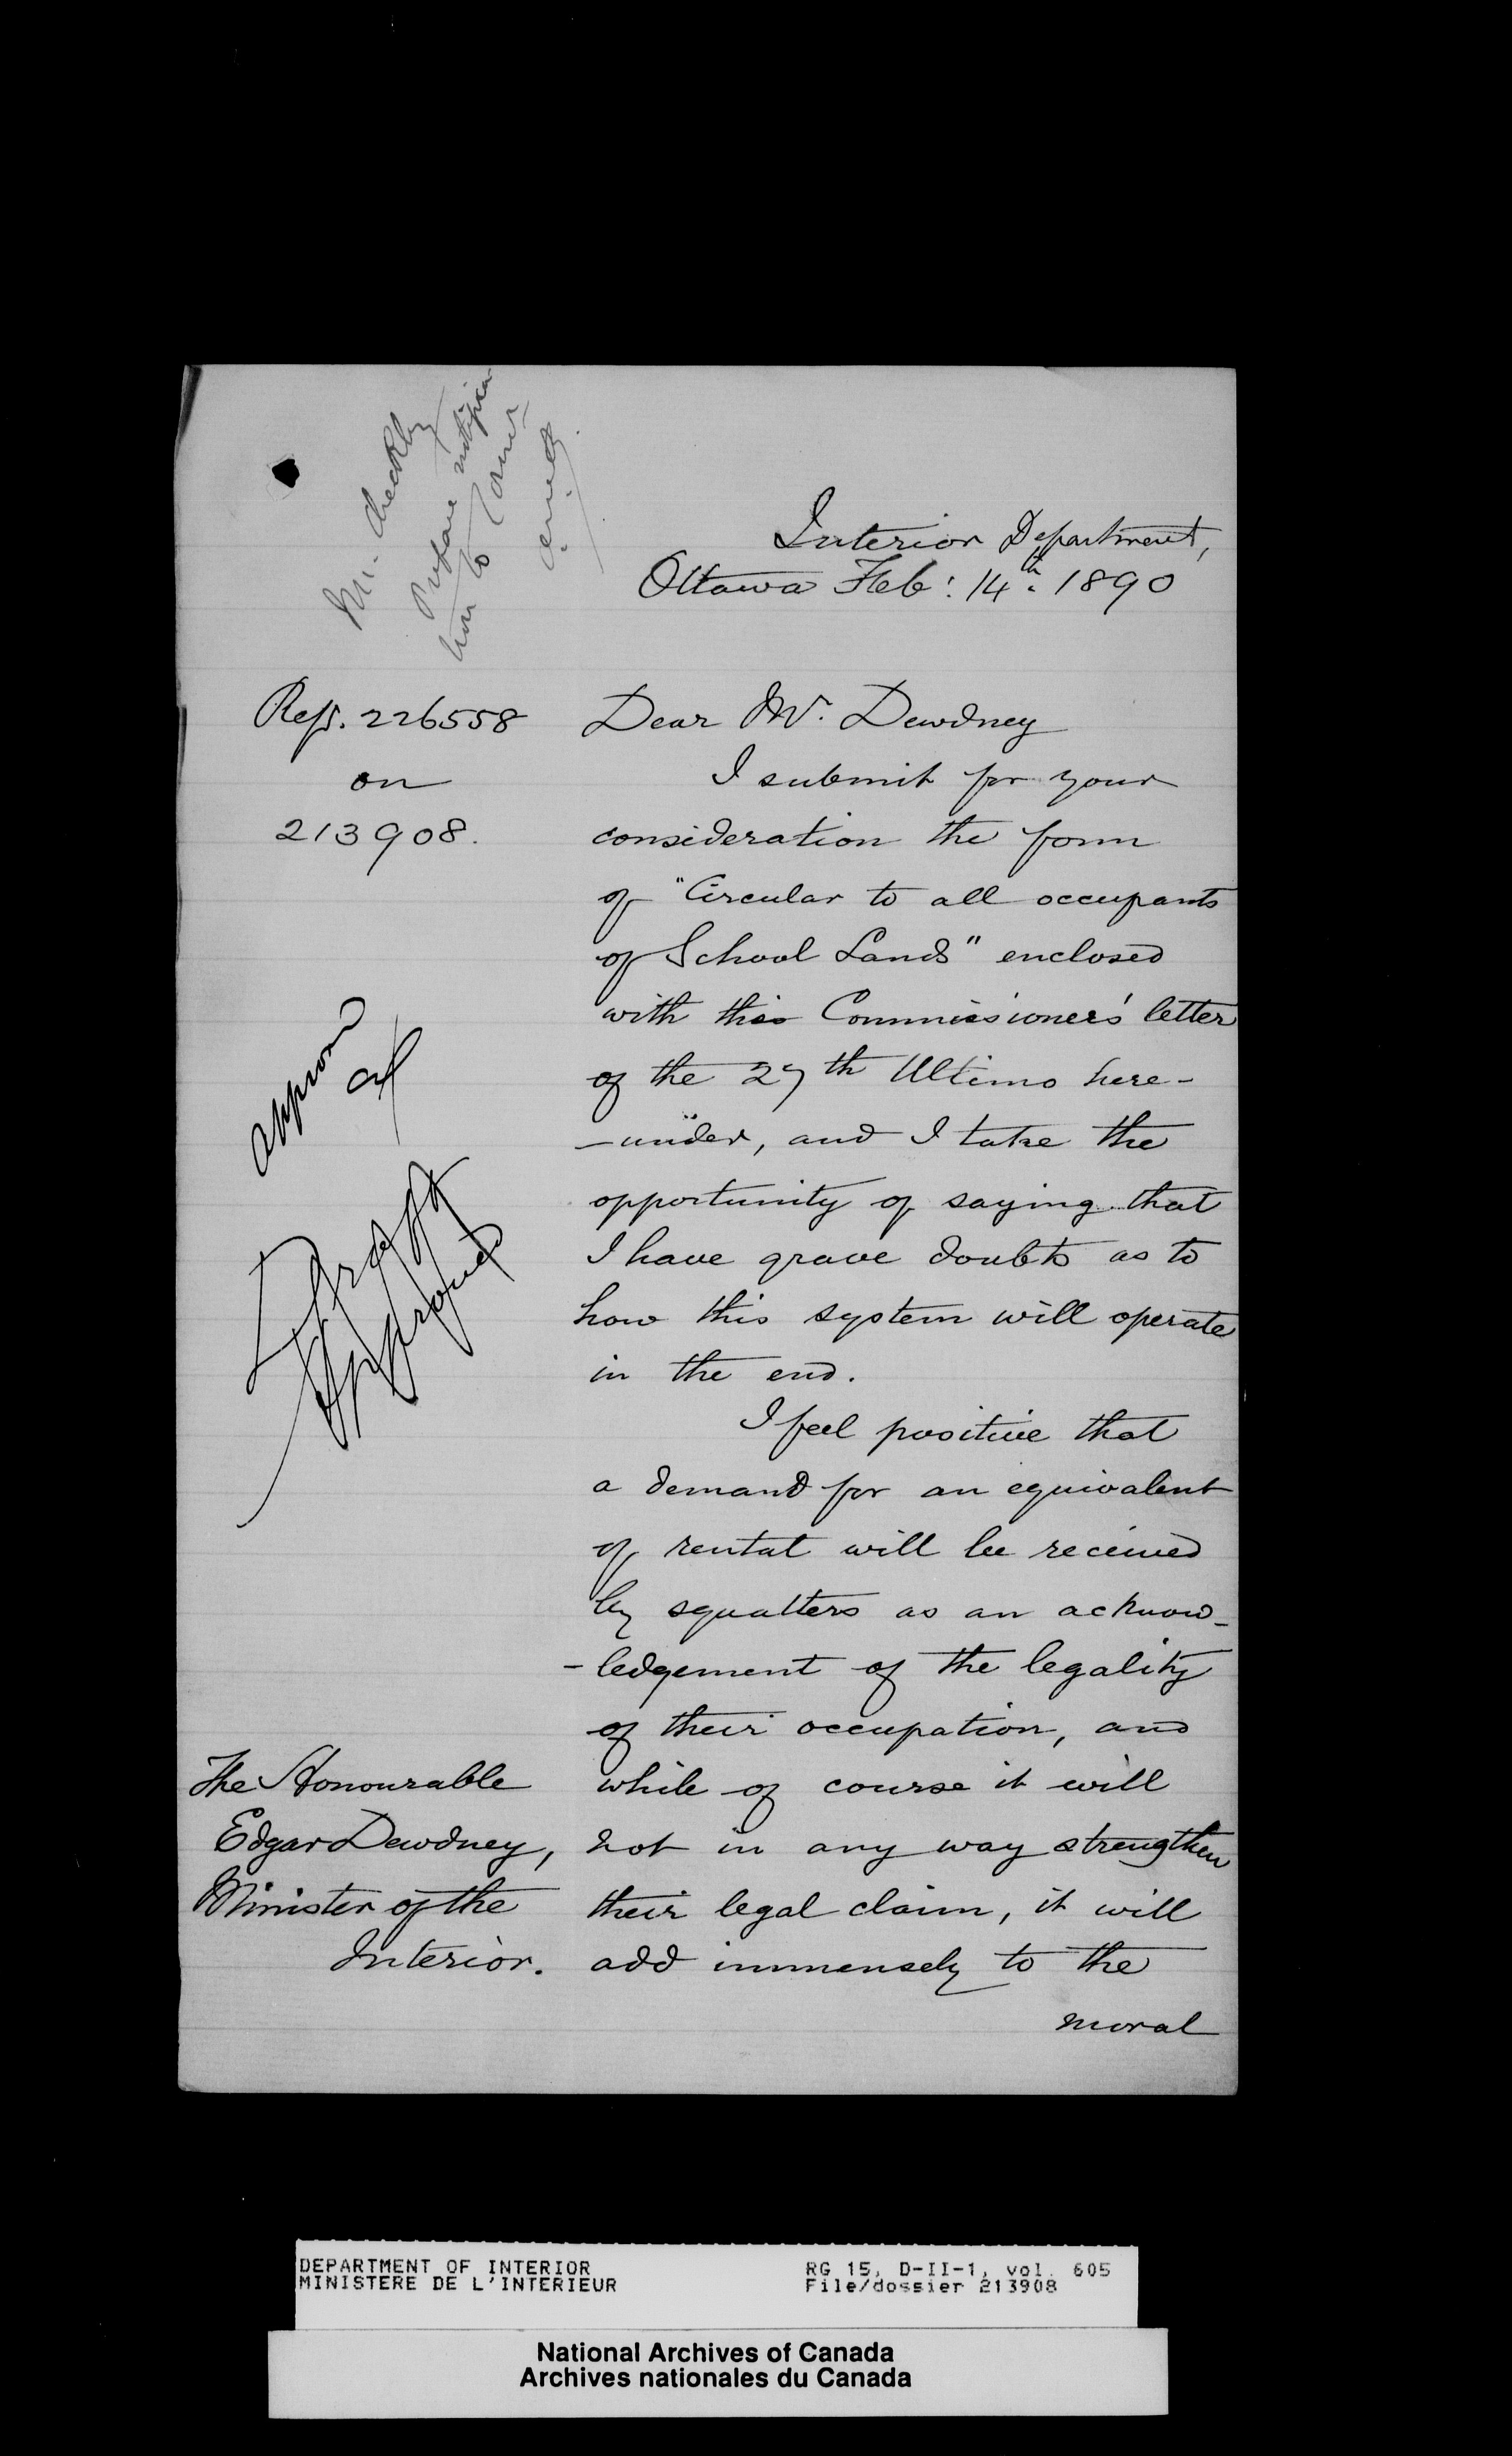 Mr. Checkley
Prepare notifica
tion to Comr
Interior Department,
Ottawa Feb: 14th. 1890
Refs. 226558
on
213908.
Dear Mr. Dewdney
I submit for your
consideration the form
of "Circular to all occupants
of School Lands" enclosed
with this Commissioner's letter
of the 27th Ultimo here-
-under, and I take the
opportunity of saying that
I have grave doubts as to
how this system will operate
in the end.
I feel positive that
a demand for an equivalent
of rental will be received
by squatters as an acknow-
-ledgement of the legality
of their occupation, and
while of course it will
not in any way strengthen
their legal claim, it will
add immensely to the
moral
approved
Draft
Approved
The Honourable
Edgar Dewdney,
Minister of the
Interior.
DEPARTMENT OF INTERIOR
MINISTERE DE L'INTERIEUR
RG 15, D-II-1, vol. 605
File/dossier 213908
National Archives of Canada
Archives nationales du Canada